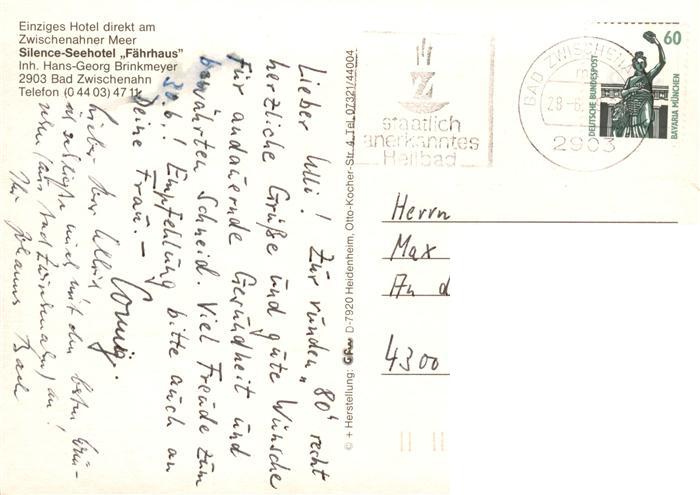 Einziges Hotel direkt am
Zwischenahner Meer
Silence-Seehotel „Fährhaus"
Inh. Hans-Georg Brinkmeyer
2903 Bad Zwischenahn
Telefon (0 44 03) 47 11
Lieber Ulli! Zur runden „80" recht
herzliche Grüße und gute Wünsche
für andauernde Gesundheit und
bewährten Schneid. Viel Freude zum
30.6.! Empfehlung bitte auch an
Deine Frau. –
Conny.
Lieber Herr Ullrich
ich schließe mich mit den besten Grü-
ßen (aus Bad Zwischenahn) an!
Ihr Johannes
© + Herstellung: D-7920 Heidenheim, Otto-Kocher-Str. 4, Tel. 07321/44004
staatlich
anerkanntes
Heilbad
BAD ZWISCHENA
28.-6.
2903
60
DEUTSCHE BUNDESPOST
BAVARIA MÜNCHEN
Herrn
Max
An d
4300